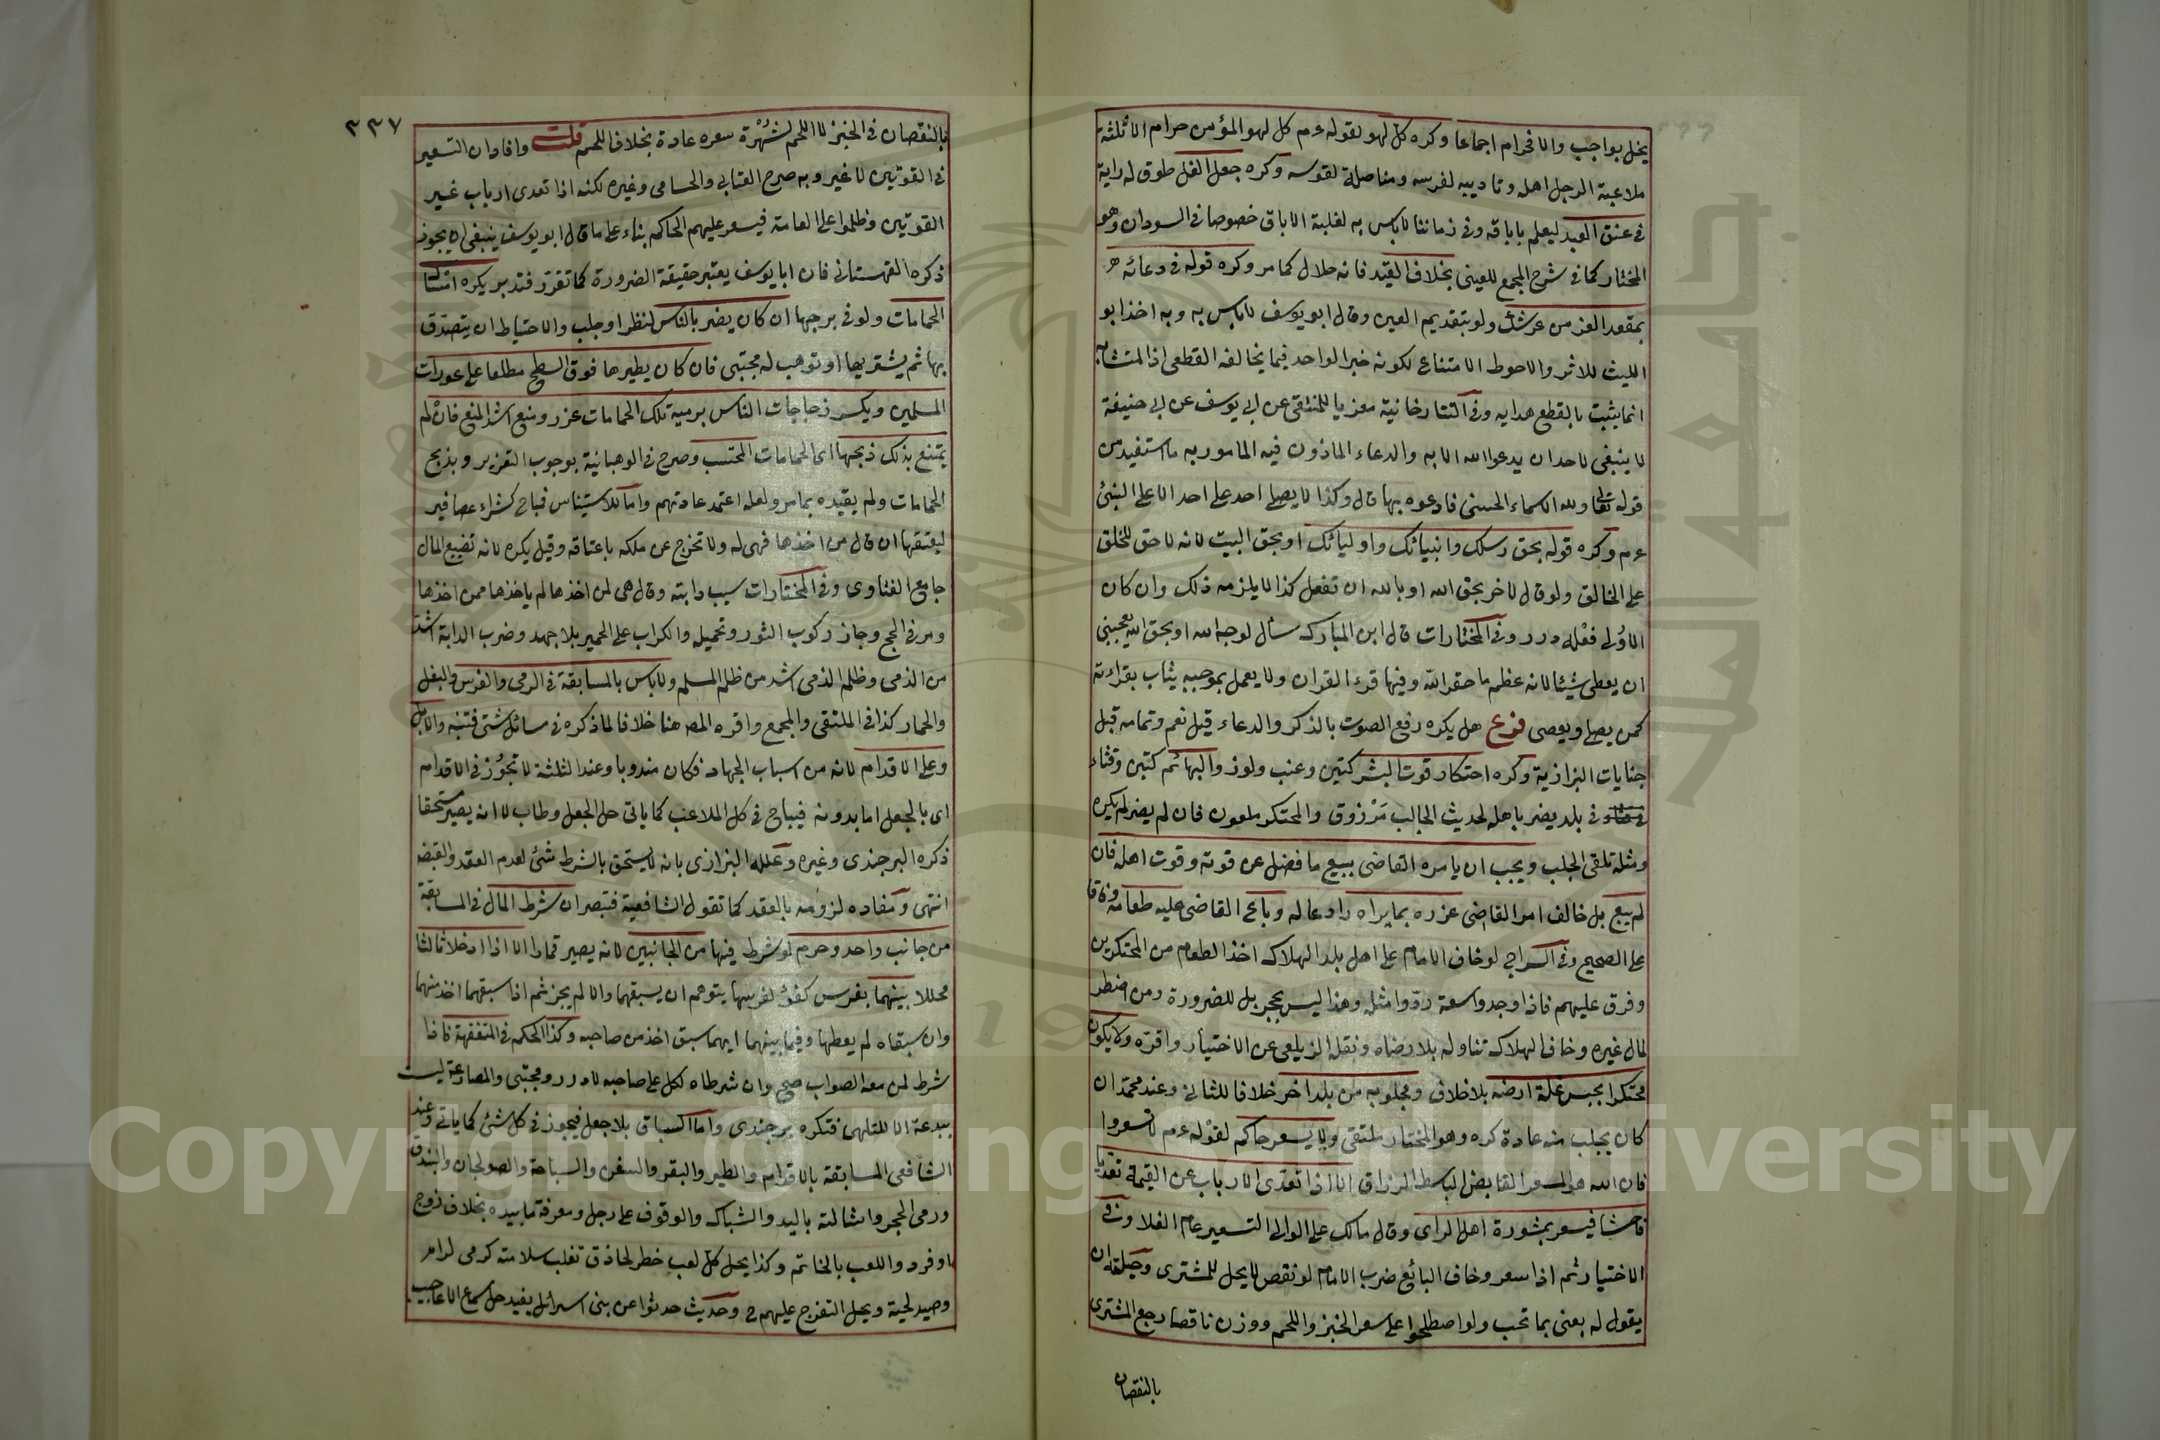 يخل بواجب والا فحرام اجماعا وكره كل لهو لقوله عم كل لهو المؤمن حرام الا ثلثة
ملاعبة الرجل اهله وتاديبه لفرسه ومناصلة لقوسه وكره جعل الغل طوق له راية
في عنق العبد ليعلم باباقه وفي زماننا لا باس به لغلبة الاباق خصوصا في السودان وهو
المختار كما في شرح المجمع للعيني بخلاف القيد فانه حلال كما مر وكره قوله في دعائه
بمقعد العز من عرشك ولو بتقديم العين وقال ابو يوسف لا باس به وبه اخذ ابو
الليث للاثر والاحوط الامتناع لكونه خبر الواحد فيما يخالفه القطعي اذ المتشابه
انما يثبت بالقطع هدايه وفي التتارخانية معزيا للمنتقى عن ابي يوسف عن ابي حنيفة
لا ينبغي لاحد ان يدعو الله الا به والدعاء الماذون فيه المامور به ما استفيد من
قوله تعالى ولله الاسماء الحسنى فادعوه بها قال وكذا لا يصلي احد على احد الا على النبئ
عم وكره قوله بحق رسلك وانبيائك واوليائك او بحق البيت لانه لا حق للخلق
على الخالق ولو قال لاخر بحق الله او بالله ان تفعل كذا لا يلزمه ذلك وان كان
الاولى فعله درر وفي المختارات قال ابن المبارك سأل لوجه الله او بحق الله يعجبني
ان يعطى شيئا لانه عظم ما حقر الله وفيها قرء القران ولا يعمل بموجبه يثاب بقراءته
كمن يصلي ويعصى فرع هل يكره رفع الصوت بالذكر والدعاء قيل نعم وتمامه قبل
جنايات البزازية وكره احتكار قوت البشر كتين وعنب ولوز والبهائم كتبن وقثاء
في بلد يضر باهله لحديث الجالب مرزوق والمحتكر ملعون فان لم يضر لم يكره
ومثله تلقى الجلب ويجب ان يامره القاضى ببيع ما فضل عن قوته وقوت اهله فان
لم يبع بل خالف امر القاضى عزره بما يراه رادعا له وباع القاضى عليه طعامه وفاقا
على الصحيح وفي السراج لو خاف الامام على اهل بلد الهلاك اخذ الطعام من المحتكرين
وفرق عليهم فاذا وجدوا سعة ردوا مثله وهذا ليس بحجر بل للضرورة ومن اضطر
لمال غيره وخاف الهلاك تناوله بلا رضاه ونقله الزيلعي عن الاختيار واقره ولا يكون
محتكرا بحبس غلة ارضه بلا خلاف ومجلوبه من بلد اخر خلافا للثاني وعند محمد ان
كان يجلب منه عادة كره وهو المختار ملتقى ولا يسعر حاكم لقوله عم لا تسعروا
فان الله هو المسعر القابض الباسط الرزاق الا اذا تعدى الارباب عن القيمة تعديا
فاحشا فيسعر بمشورة اهل الراى وقال مالك على الوالى التسعير عام الغلا وفي
الاختيار ثم اذا سعر وخاف البائع ضرب الامام لو نقص لا يحل للمشترى وحيلته ان
يقول له بعنى بما تحب ولو اصطلحوا على سعر الخبز واللحم ووزن ناقصا رجع المشترى
بالنقصان
٣٣٧
بالنقصان في الخبز لا اللحم لشهرة سعره عادة بخلاف اللحم قلت وافاد ان التسعير
في القوتين لا غير وبه صرح العتابي والحسامي وغيره لكنه اذا تعدى ارباب غير
القوتين وظلموا على العامة فيسعر عليهم الحاكم بناء على ما قال ابو يوسف ينبغي ان يجوز
ذكره القهستاني فان ابا يوسف يعتبر حقيقة الضرورة كما تقرر فتدبر يكره امساك
الحمامات ولو في برجها ان كان يضر بالناس لنظر او جلب والاحتياط ان يتصدق
بها ثم يشتريها او توهب له مجتبى فان كان يطيرها فوق السطح مطلعا على عورات
المسلمين ويكسر زجاجات الناس برميه تلك الحمامات عزر ومنع اشد المنع فان لم
يمتنع بذلك ذبحها اى الحمامات المحتسب وصرح في الوهبانية بوجوب التعزير وبذبح
الحمامات ولم يقيده بما مر ولعله اعتمد عادتهم واما للاستيناس فباح كشراء عصافير
ليعتقها ان قال من اخذها فهى له ولا تخرج عن ملكه باعتاقه وقيل يكره لانه تضييع المال
جامع الفتاوى وفي المختارات سيب دابته وقال هى لمن اخذها لم ياخذها ممن اخذها
ومر في الحج وجاز ركوب الثور وتحميله والكراب على الحمير بلا جهد وضرب الدابة اشد
من الذمى وظلم الذمى اشد من ظلم المسلم ولا باس بالمسابقة في الرمى والفرس والبغل
والحمار كذا في الملتقى والمجمع واقره المص هنا خلافا لما ذكره في مسائل شتى فتنبه والابل
وعلى الاقدام لانه من اسباب الجهاد فكان مندوبا وعند الثلثة لا تجوز في الاقدام
اى بالجعل اما بدونه فيباح في كل الملاعب كما ياتي حل الجعل وطاب لا انه يصير مستحقا
ذكره البرجندى وغيره وعلله البزازى بانه لا يستحق بالشرط شئ لعدم العقد والقبض
انتهى ومفاده لزومه بالعقد كما تقول الشافعية فتبصر ان شرط المال في المسابقة
من جانب واحد وحرم لو شرط فيها من الجانبين لانه يصير قمارا الا اذا ادخلا ثالثا
محللا بينهما بفرس كفؤ لفرسها يتوهم ان يسبقهما والا لم يجز ثم اذا سبقهما اخذ منهما
وان سبقاه لم يعطها وفيما بينهما ايهما سبق اخذ من صاحبه وكذا الحكم في المتفقهة فاذا
شرط لمن معه الصواب صح وان شرطاه لكل على صاحبه لا درر ومجتبى والمصارعة ليست
ببدعة الا للتلهى فتكره برجندى واما السباق بلا جعل فيجوز في كل شئ كما ياتي وعند
الشافعى المسابقة بالاقدام والطير والبقر والسفن والسباحة والصولجان والبندق
ورمى الحجر واشالته باليد والشباك والوقوف على رجل ومعرفة ما بيده بخلاف زوج
او فرد واللعب بالخاتم وكذا يحل كل لعب خطر لحاذق تغلب سلامته كرمى لرام
وصيد لحية ويحل التفرج عليهم ح وحديث حدثوا عن بنى اسرائل يفيد حل سماع الاعاجيب
Copyright © King Saud University